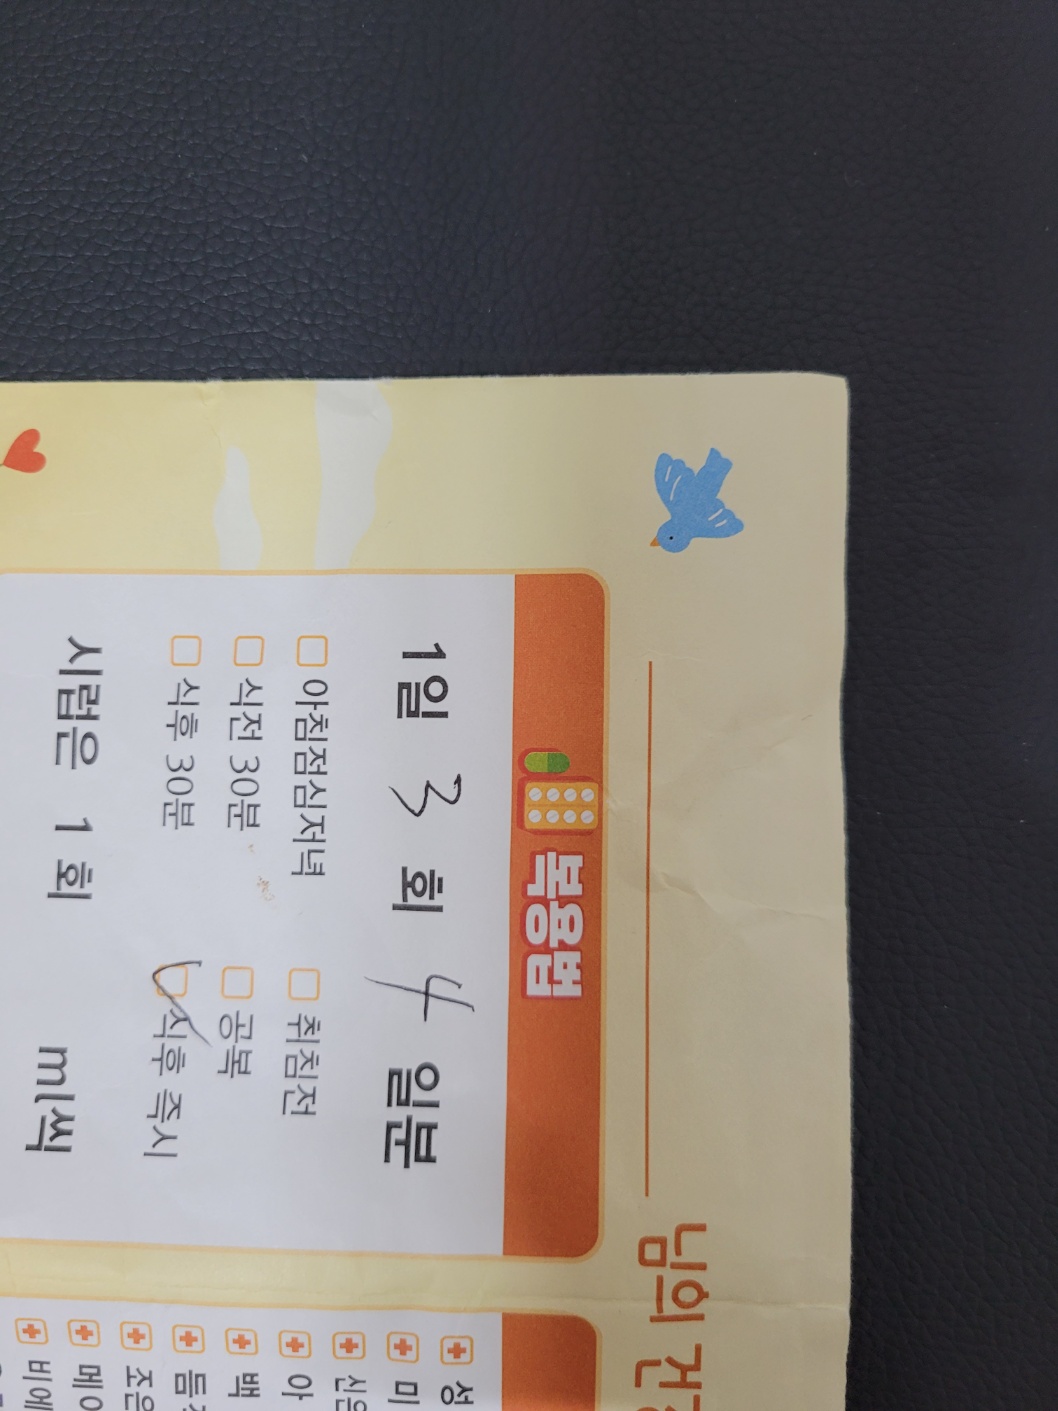 님의 건강
복용법
1일 3 회 4 일분
아침점심저녁 취침전
식전 30분 공복
식후 30분 식후 즉시
시럽은 1 회 ml씩
성
미
신은
아
백
듬
조은
메이
비에